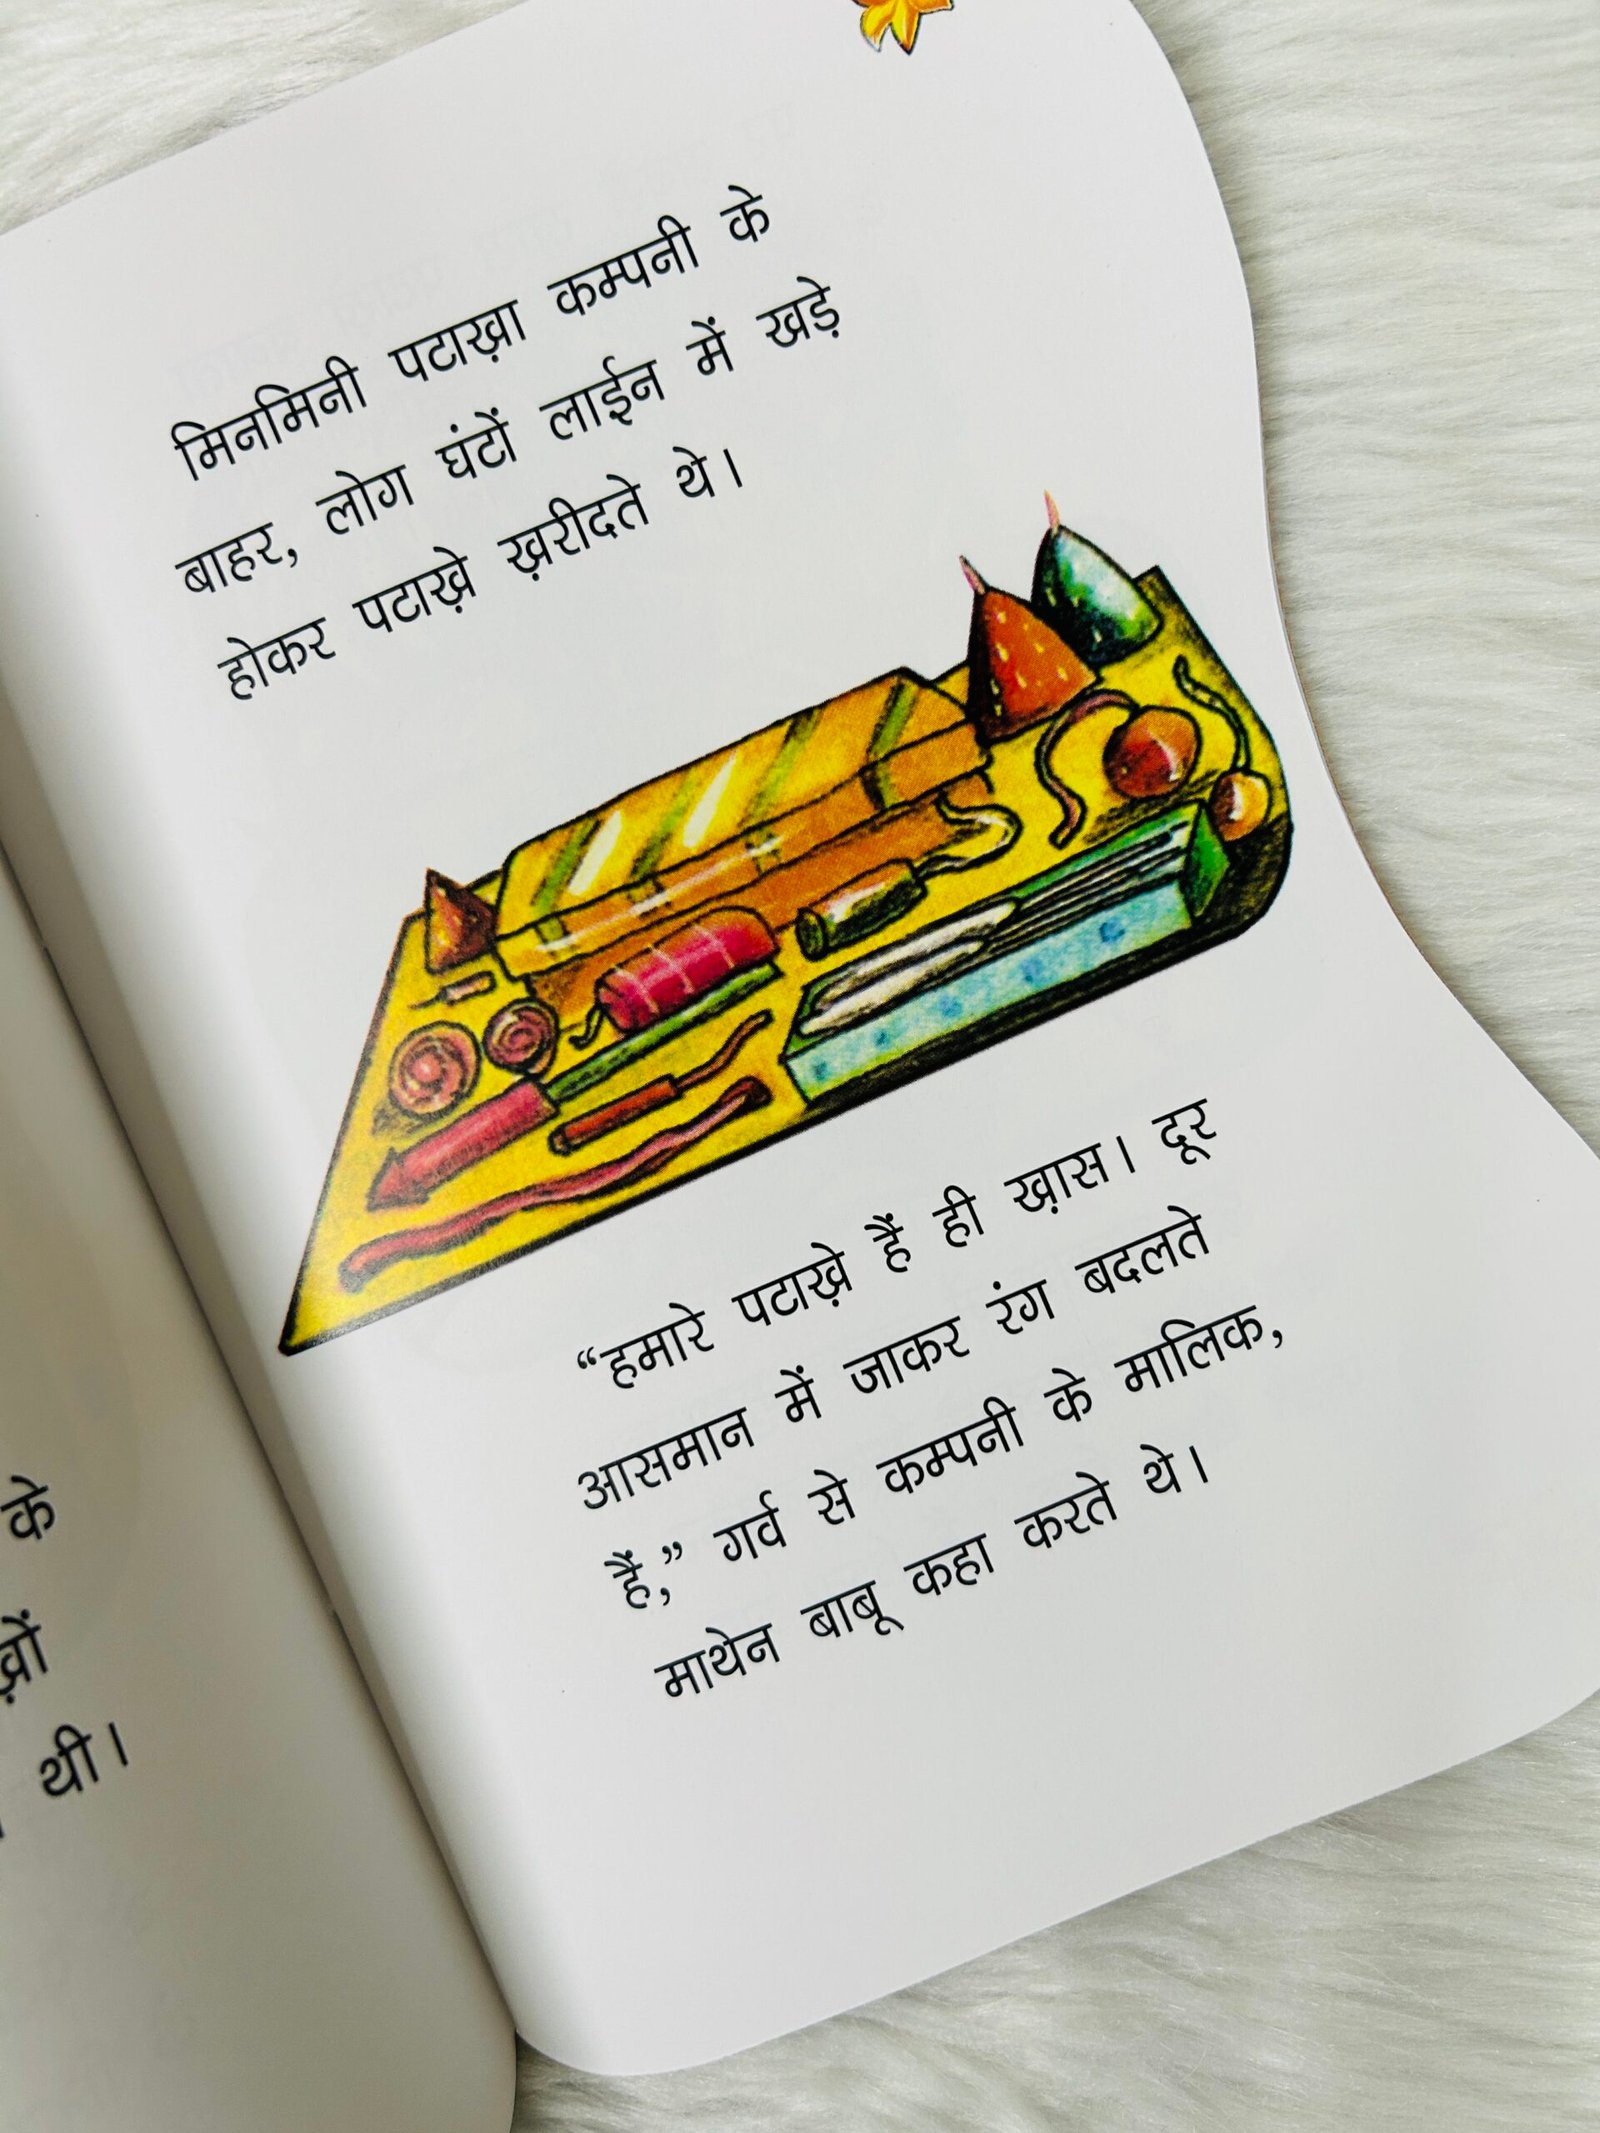 के
थी।
मिनमिनी पटाख़ा कम्पनी के
बाहर, लोग घंटों लाईन में खड़े
होकर पटाख़े ख़रीदते थे।
“हमारे पटाख़े हैं ही ख़ास। दूर
आसमान में जाकर रंग बदलते
हैं,” गर्व से कम्पनी के मालिक,
माथेन बाबू कहा करते थे।